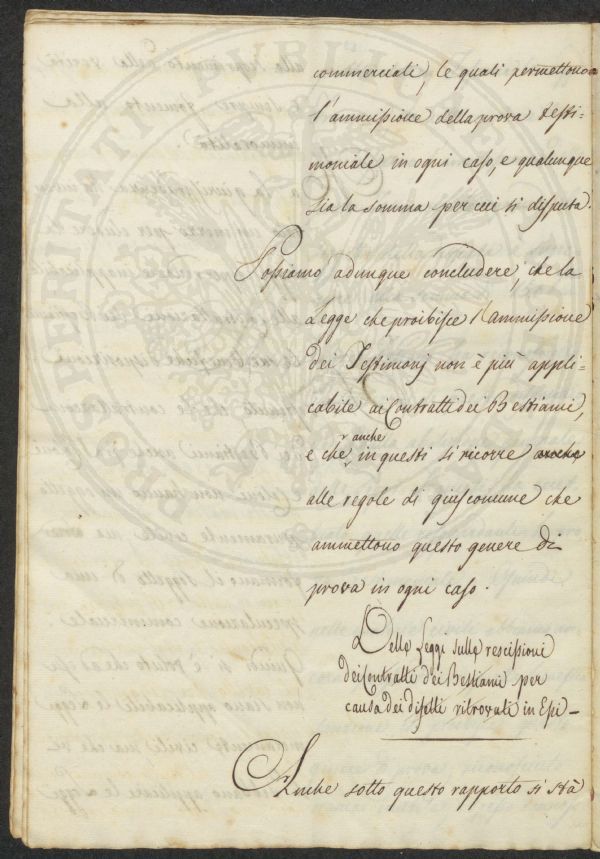 commerciali, le quali permettono
l'ammissione della prova testi=
moniale in ogni caso, e qualunque
sia la somma per cui si disputa.
Possiamo adunque concludere, che la
Legge che proibisce l'ammissione
dei Testimonj non è più appli=
cabile ai Contratti dei Bestiami,
e che anche in questi si ricorre anche
alle regole di gius comune che
ammettono questo genere di
prova in ogni caso.
Delle Leggi sulle rescissioni
dei Contratti dei Bestiami per
causa dei difetti ritrovati in Essi –
Anche sotto questo rapporto si stà